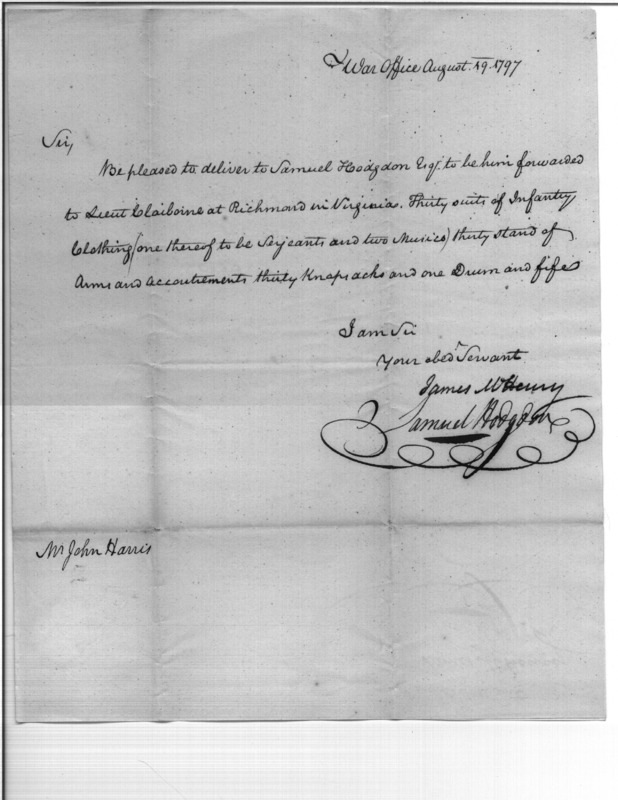 War Office August 19. 1797
Sir,
Be pleased to deliver to Samuel Hodgdon Esqr. to be him forwarded
to Lieut Claiborne at Richmond in Virginia. Thirty suits of Infantry
Clothing (one thereof to be Serjeants and two Musics) thirty stand of
Arms and accoutrements thirty Knapsacks and one Drum and fife
I am Sir
Your obedt. Servant
James McHenry
Samuel Hodgdon
Mr John Harris